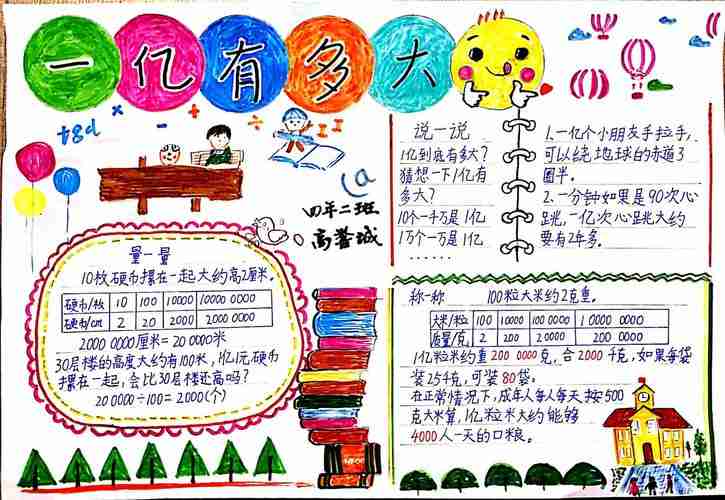 一亿有多大
四年二班
说一说
1亿到底有多大?
猜想一下1亿有
多大?
10个一千万是1亿
1万个一万是1亿
······
1.一亿个小朋友手拉手,
可以绕地球的赤道3
圈半。
2.一分钟如果是90次心
跳,一亿次心跳大约
要有2年多。
量一量
10枚硬币摞在一起大约高2厘米.
硬币/枚 10 100 10000 10000 0000
硬币/cm 2 20 2000 2000 0000
2000 0000厘米=20 0000米
30层楼的高度大约有100米,1亿1元硬币
摞在一起,会比30层楼还高吗?
20 0000÷100=2000(个)
称一称 100粒大米约2克重.
大米/粒 100 10000 100 0000 1 0000 0000
质量/克 2 200 20000 200 0000
1亿粒米约重200 0000克,合2000千克,如果每袋
装25千克,可装80袋。
在正常情况下,成年人每人每天按500
克大米算,1亿粒米大约能够
4000人一天的口粮。